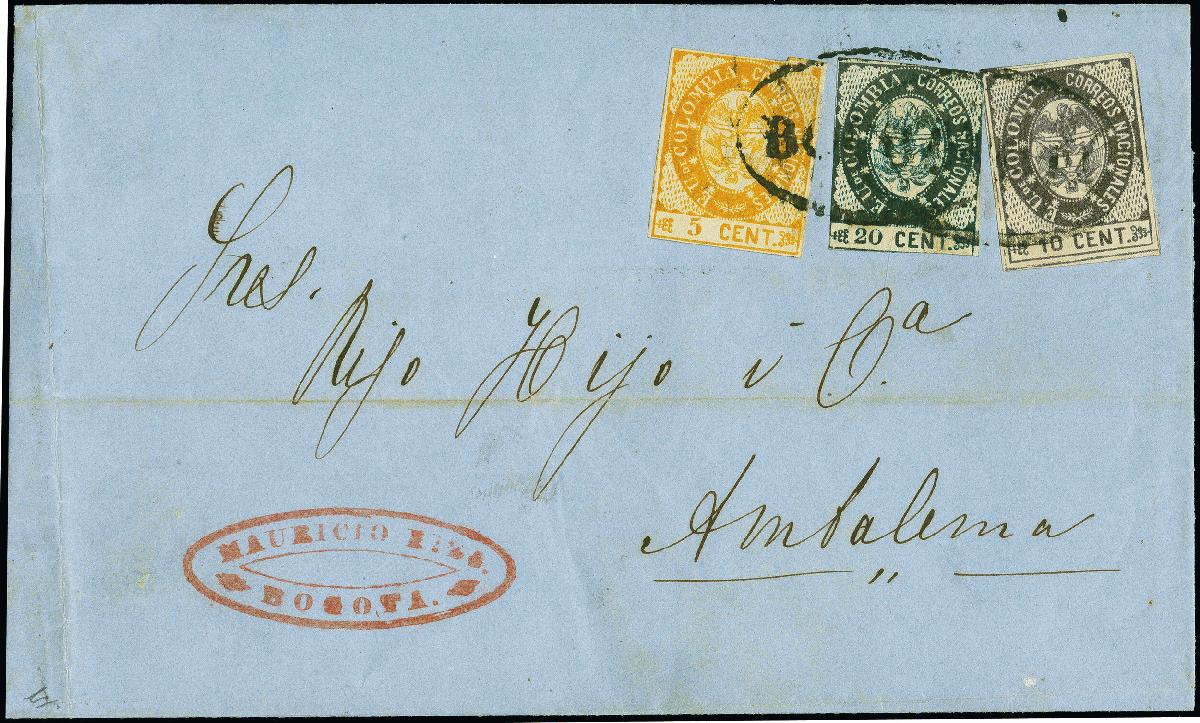 E.U. DE COLOMBIA CORREOS NACIONALES
5 CENT.
E.U. DE COLOMBIA CORREOS NACIONALES
20 CENT.
E.U. DE COLOMBIA CORREOS NACIONALES
10 CENT.
Sres.
Rijo Hijo i Ca.
Ambalema
MAURICIO
BOGOTA.